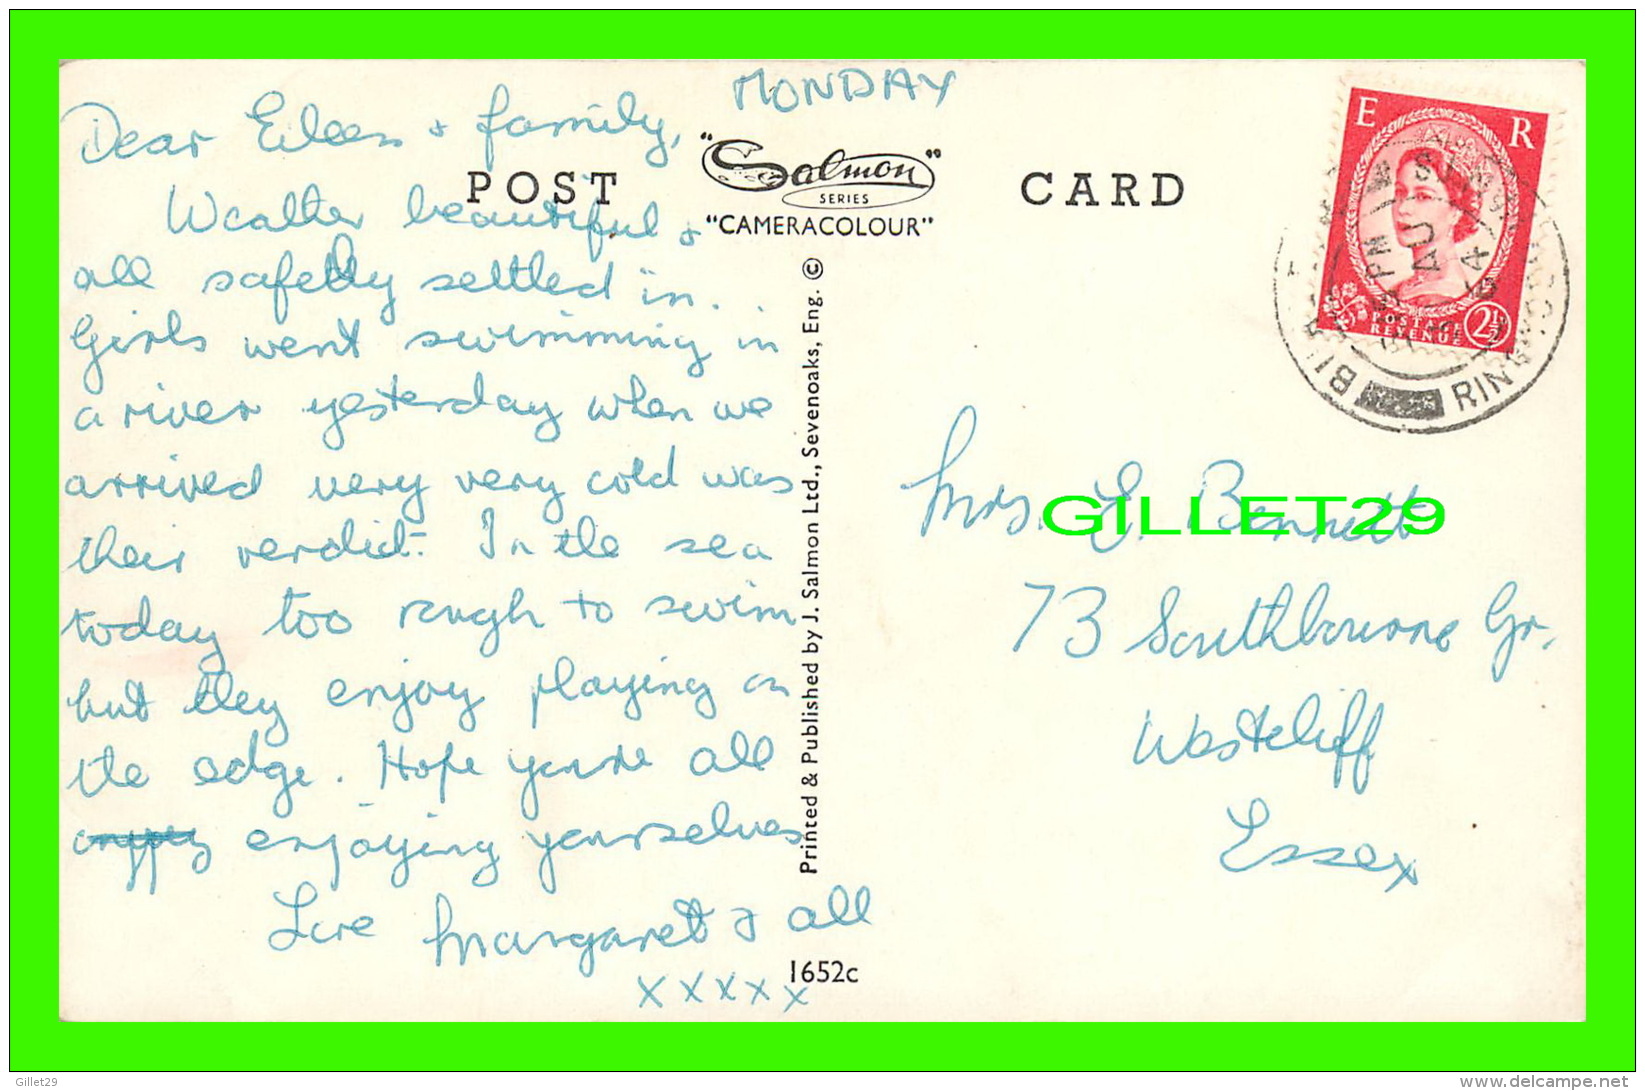 MONDAY
Dear Eileen & family,
Weather beautiful &
all safely settled in.
Girls went swimming in
a river yesterday when we
arrived very very cold was
their verdict. In the sea
today too rough to swim
but they enjoy playing on
the edge. Hope you're all
enjoying yourselves
Love Margaret & all
x x x x x
POST CARD
"Salmon"
SERIES
"CAMERACOLOUR"
Printed & Published by J. Salmon Ltd., Sevenoaks, Eng. ©
1652c
E R
POSTAGE
REVENUE
2½
PM
AU
RINGWOOD
Mrs. E. Bennett
73 Southbourne Gr.
Westcliff
Essex
GILLET29
Gillet29
www.delcampe.net